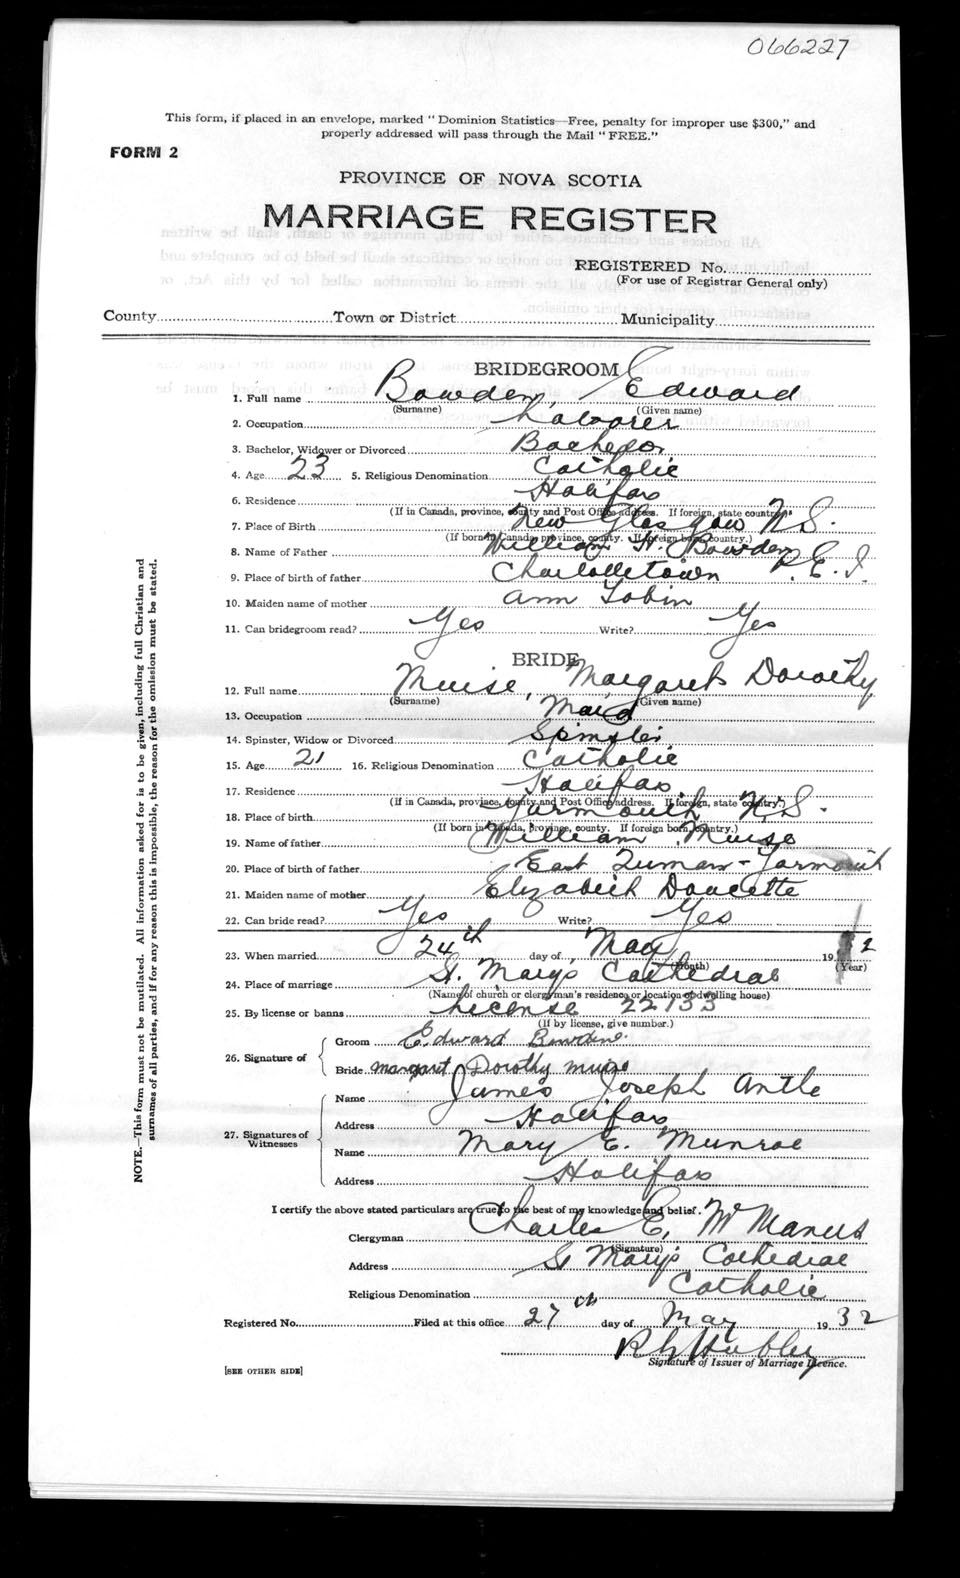 066227
This form, if placed in an envelope, marked "Dominion Statistics—Free, penalty for improper use $300," and
properly addressed will pass through the Mail "FREE."
FORM 2
PROVINCE OF NOVA SCOTIA
MARRIAGE REGISTER
REGISTERED No.
(For use of Registrar General only)
County Town or District Municipality
BRIDEGROOM
1. Full name Bowden, Edward
(Surname) (Given name)
2. Occupation Laborer
3. Bachelor, Widower or Divorced Bachelor
4. Age 23 5. Religious Denomination Catholic
6. Residence Halifax
(If in Canada, province, county and Post Office address. If foreign, state country)
7. Place of Birth New Glasgow N.S.
(If born in Canada, province, county. If foreign born, country.)
8. Name of Father William H. Bowden
9. Place of birth of father Charlottetown P.E.I.
10. Maiden name of mother Ann Tobin
11. Can bridegroom read? Yes Write? Yes
BRIDE
12. Full name Muise, Margaret Dorothy
(Surname) (Given name)
13. Occupation Maid
14. Spinster, Widow or Divorced Spinster
15. Age 21 16. Religious Denomination Catholic
17. Residence Halifax
(If in Canada, province, county and Post Office address. If foreign, state country.)
18. Place of birth Yarmouth N.S.
(If born in Canada, province, county. If foreign born, country.)
19. Name of father William Muise
20. Place of birth of father East - Yarmouth
21. Maiden name of mother Elizabeth Doucette
22. Can bride read? Yes Write? Yes
23. When married 24th day of May 19 2
(Month) (Year)
24. Place of marriage St. Mary's Cathedral
(Name of church or clergyman's residence or location of dwelling house)
25. By license or banns License 22133
(If by license, give number.)
26. Signature of
Groom Edward Bowden
Bride Margaret Dorothy Muise
27. Signatures of Witnesses
Name James Joseph Antle
Address Halifax
Name Mary E. Munroe
Address Halifax
I certify the above stated particulars are true to the best of my knowledge and belief.
Clergyman Charles E. McManus
(Signature)
Address St Mary's Cathedral
Religious Denomination Catholic
Registered No. Filed at this office 27th day of May 19 32
Signature of Issuer of Marriage Licence.
[SEE OTHER SIDE]
NOTE.—This form must not be mutilated. All Information asked for is to be given, including full Christian and
surnames of all parties, and if for any reason this is impossible, the reason for the omission must be stated.